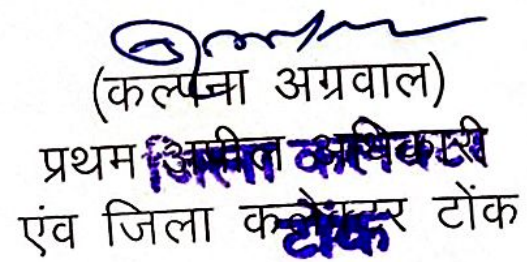 (कल्पना अग्रवाल)
प्रथम अपील अधिकारी
एंव जिला कलेक्टर टोंक
टोंक